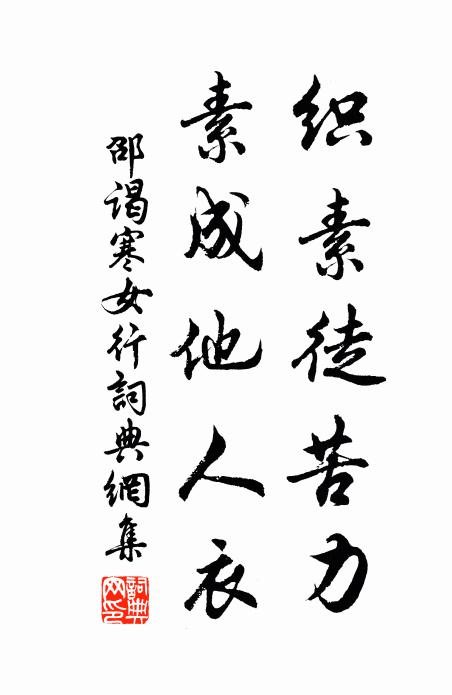 织素徒苦力
素成他人衣
邵谒寒女行詞典網集
詞典
网印